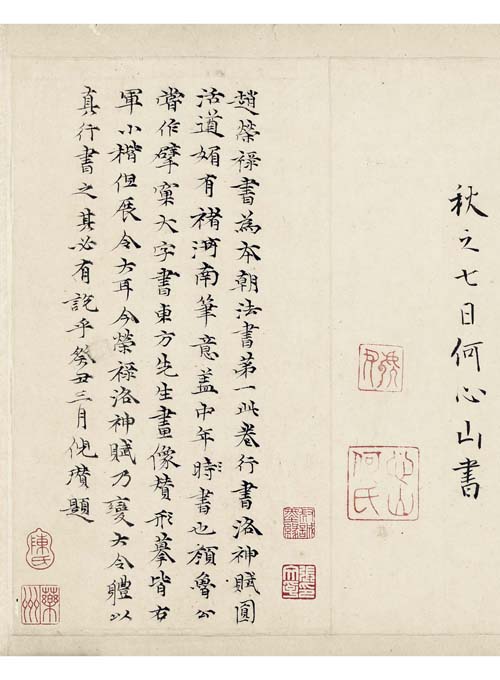 秋之七日何心山書
心山何氏
趙榮祿書為本朝法書第一此卷行書洛神賦圓
活遒媚有褚河南筆意蓋中年時書也顏魯公
嘗作擘窠大字書東方先生畫像贊形摹皆右
軍小楷但展令大耳今榮祿洛神賦乃變大令體以
真行書之其必有說乎癸丑三月倪瓚題
陳氏